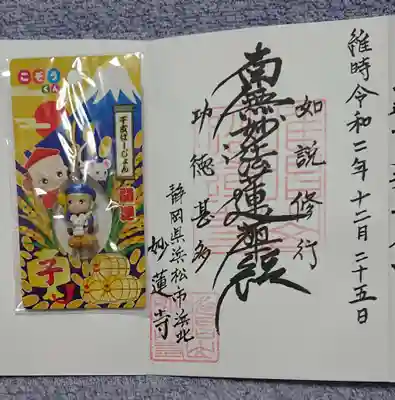 維時令和二年十二月二十五日
如説修行
南無妙法蓮華経
功徳甚多
静岡県浜松市浜北
妙蓮寺
こぞうくん
干支ばーじょん
開運
子